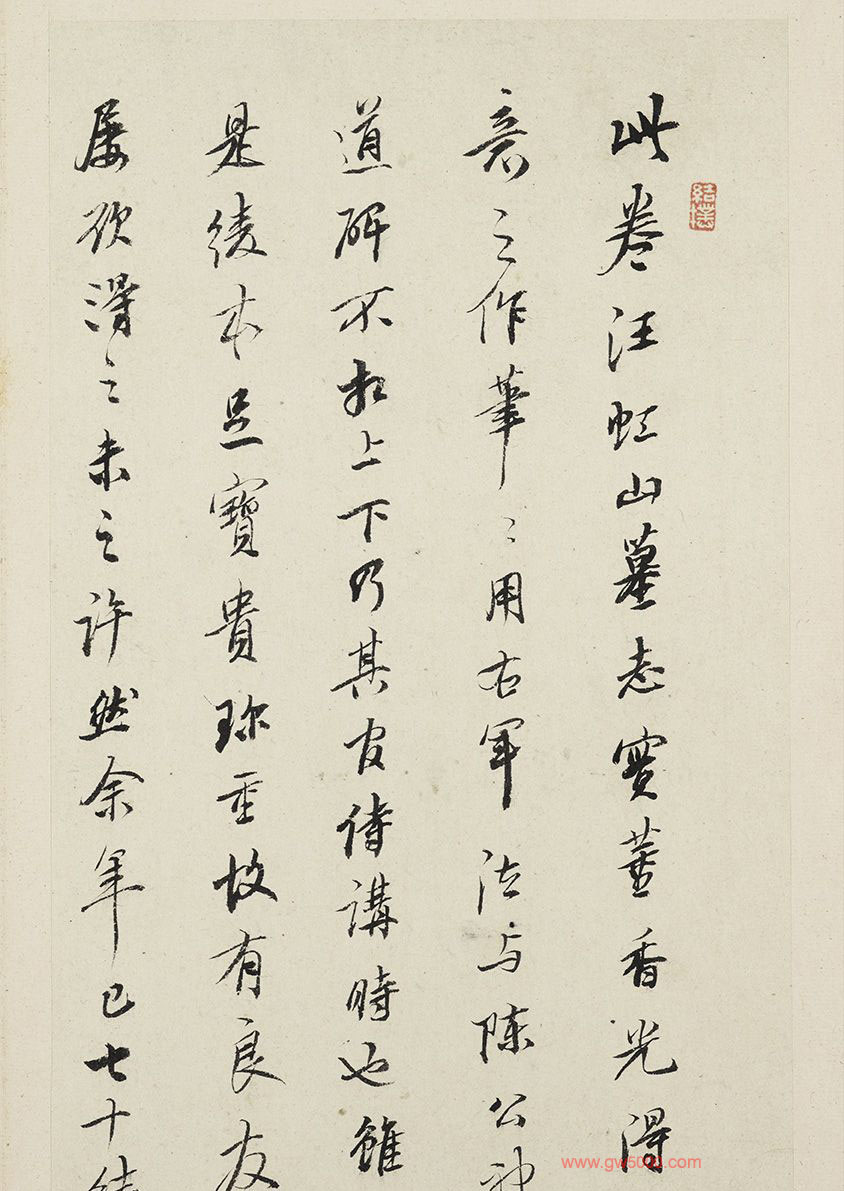 此卷汪虹山墓志實董香光得
意之作筆〻用右軍法与陳公神
道碑不相上下乃其官侍講時也雖
是綾本足寶貴珍重故有良友
屡欲得之未之許然余年已七十